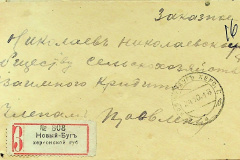 Заказное
16
Николаевъ Николаевской
Обществу Сельскохозяйств
Взаимнаго Кредита
Членам Правленія
З
№ 508
Новый-Бугъ
херсонской губ